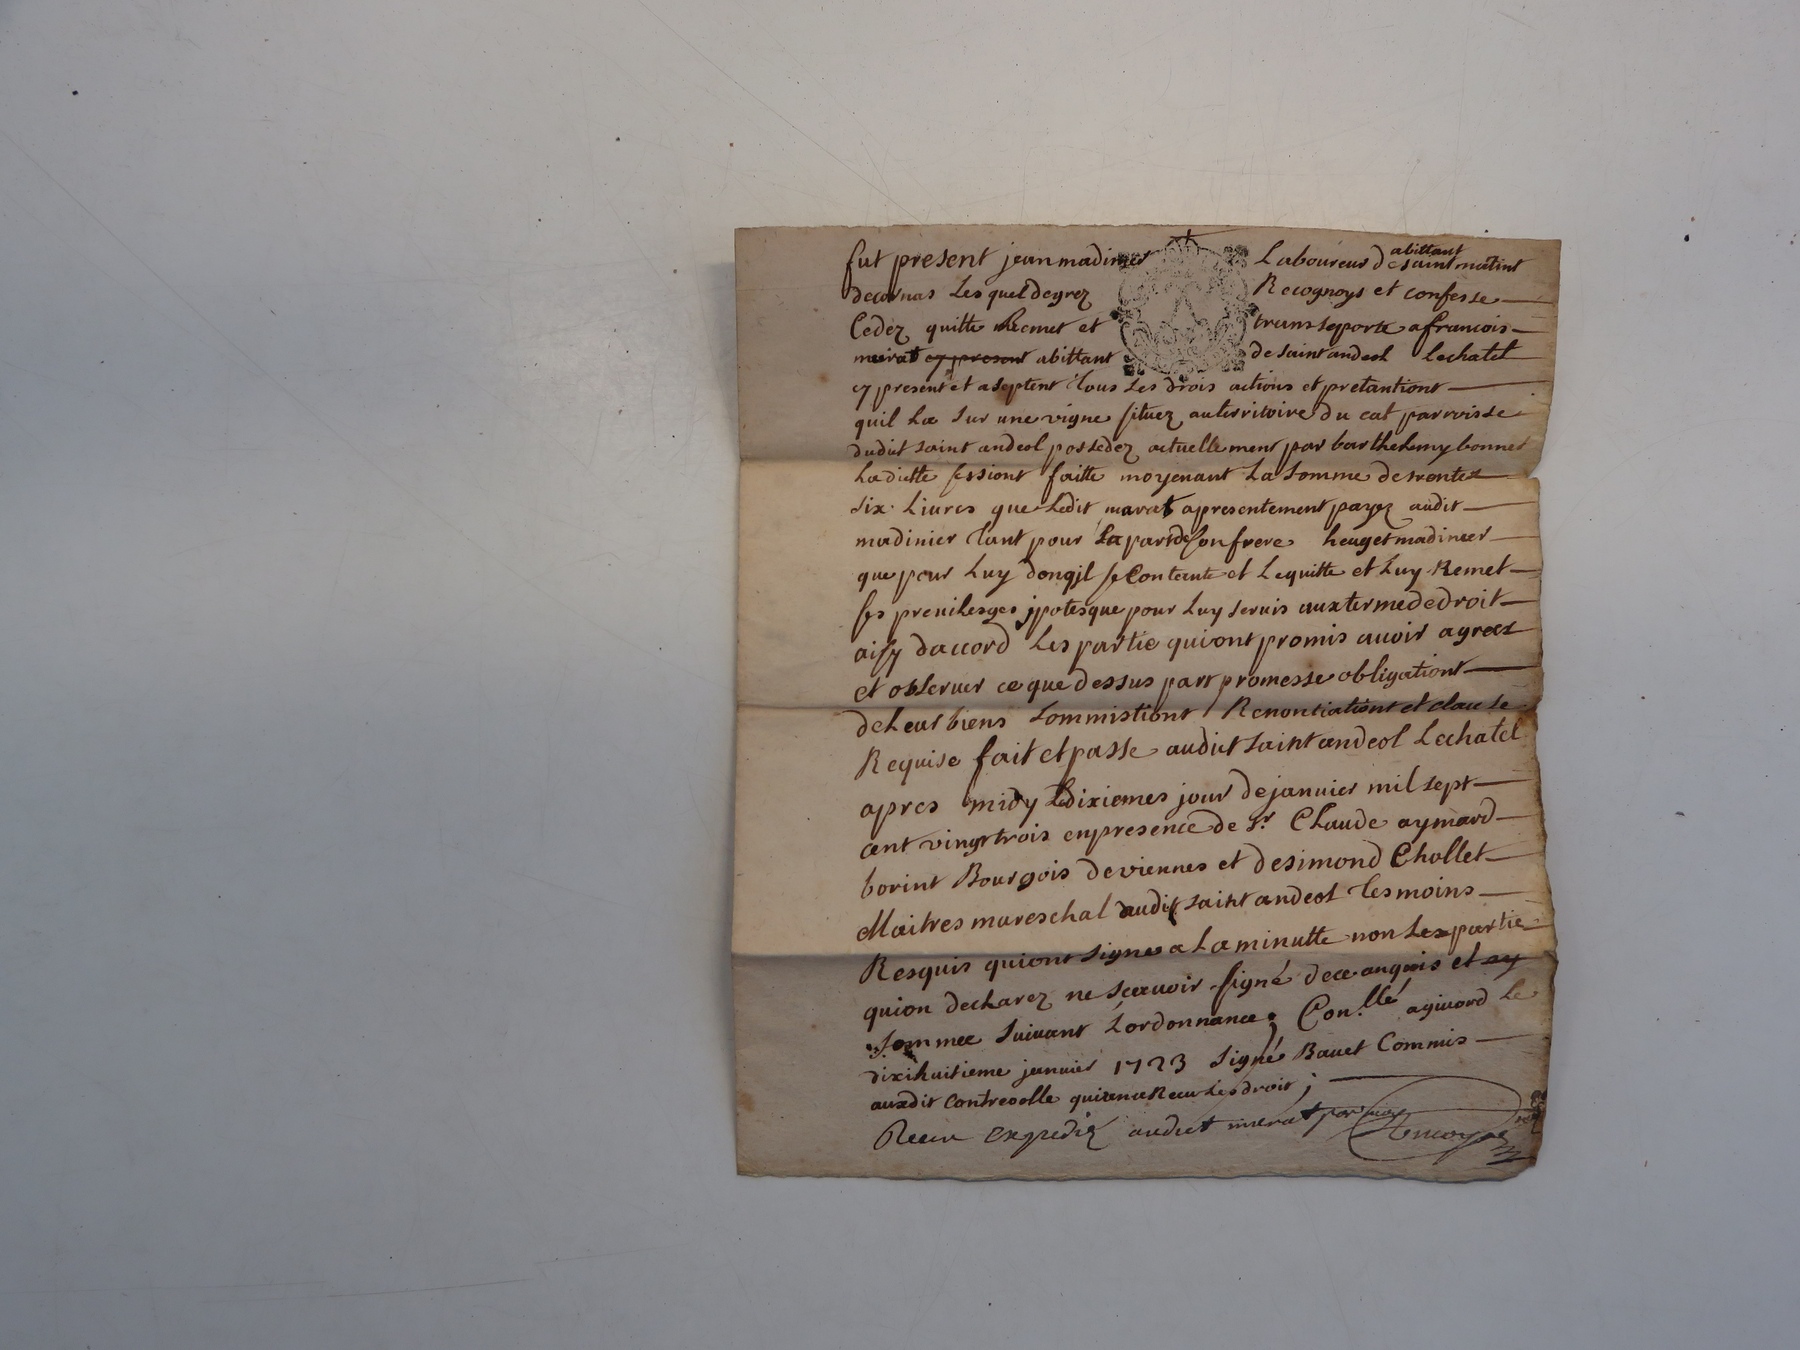 fut present jean madinier Laboureur abittant de saint matint
decornas Lesquel degrez Recognoys et confesse
Cedez quitte Remet et transseporte a francois
mairat cy present abittant de saint andeol Lechatel
cy present et aseptent tous Les drois actions et pretantiont
quil La sur une vigne situez auterritoire du cat parroisse
dudit saint andeol possedez actuellement par barthelemy bonnet
Laditte sessiont faitte moyenant La somme detrente
six Liures que Ledit marat apresentement payez audit
madinier tant pour La part de son frere heuget madinier
que pour Luy donqil se Contente et Lequitte et Luy Remet
ses preuilesges jpotesque pour Luy seruis aux terme de droit
aisy daccord Les partie quiont promis auoir agreez
et obseruer ce que dessus parr promesse obligationt
deLeur biens sommistiont Renontiationt et clause
Requise fait et passe audit saint andeol Lechatel
apres midy Le dixiemes jour de januier mil sept
cent vingt trois en presence de Sr Claude aymard
borint Bourgois deviennes et desimond Chollet
Maitres mareschal audit saint andeol tesmoins
Resquis quiont signes a La minutte non Les partie
quion declarez ne sceauoir signé dece anquis et
sommee suiuant Lordonnance; Con.llé agiuord Le
dixihuitieme januier 1723 signé Bauet Commis
audit Controolle qui en a Receu Les droit;
Receu Expediez audit mairat par moy